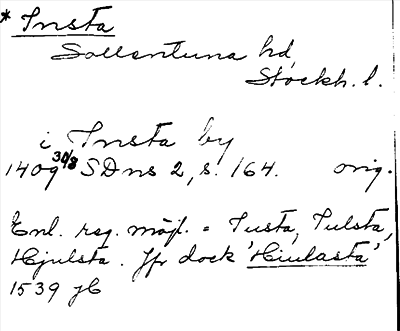 * Insta
Sollentuna hd,
Stockh. l.
i Insta by
1409 30/8 SDns 2, s. 164. orig.
Enl. reg. möjl. = Iusta, Iulsta,
Hjulsta. Jfr dock 'Hiulasta'
1539 jb